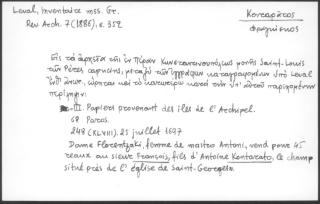 Laval, Inventaire mss. Gr.
Rev Arch. 7 (1886), σ. 352
Κονταράτος
Φραγκίσκος
Εἰς τὸ ἀρχεῖον τῆς ἐν Πέραν Κωνσταντινουπόλεως μονῆς Saint-Louis
τῶν Pères capucins, μεταξὺ τῶν ἐγγράφων καταγραφομένων ὑπὸ Laval
εὑρίσκεται καὶ τὸ κατωτέρω κατὰ τὴν ὑπ' αὐτοῦ παρεχομένην
περίληψιν:
III. Papiers provenant des îles de l'Archipel.
6º Paros.
248 (XLVIII). 25 juillet 1697
Dame Florentzaki, femme de mastro Antoni, vend pour 45
reaux au sieur François, fils d'Antoine Kontarato, le champ
situé près de l'église de Saint-Georges.